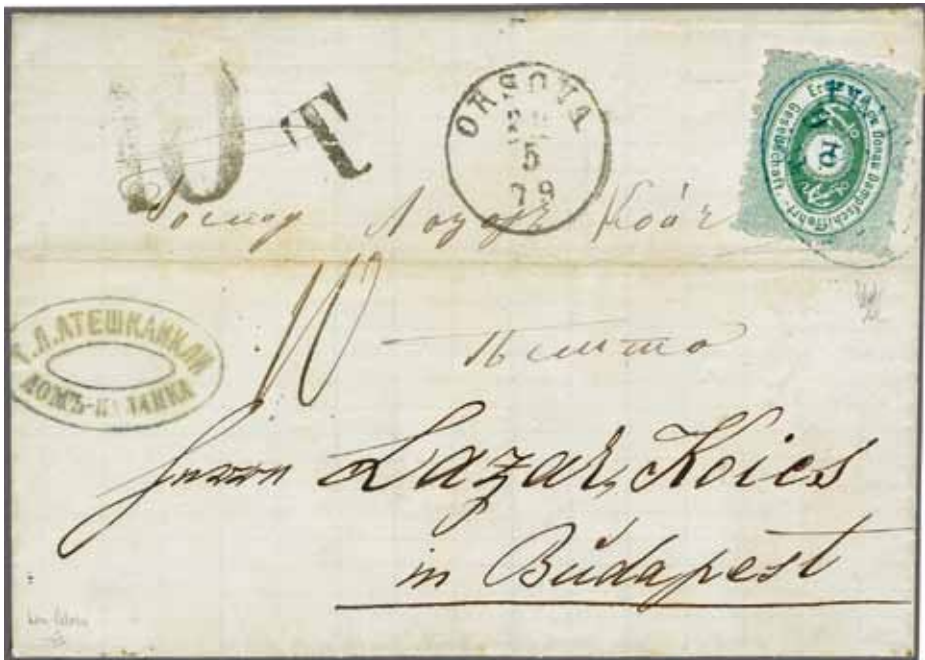 10 T
ORSOVA
5
79
Erste k. k. pr. Donau Dampfschiffahrt-Gesellschaft
10
Господ Лазаръ
10
Пешта
Т.Д.АТЕШКАНКЛИ
ЛОМЪ-ПАЛАНКА
Herrn Lazar Koics
in Budapest